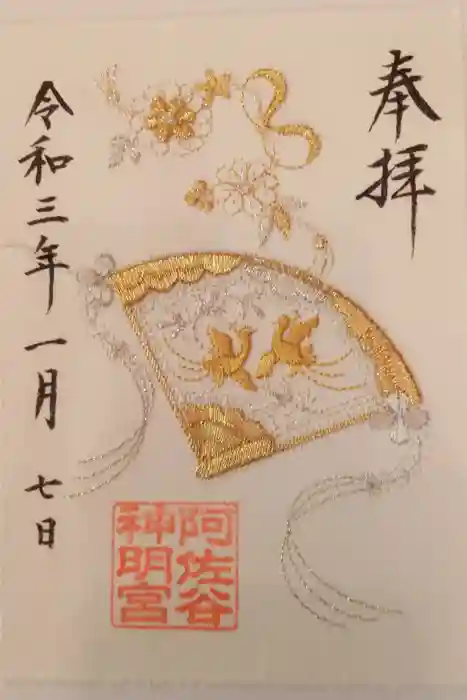 奉拝
阿佐谷
神明宮
令和三年一月七日